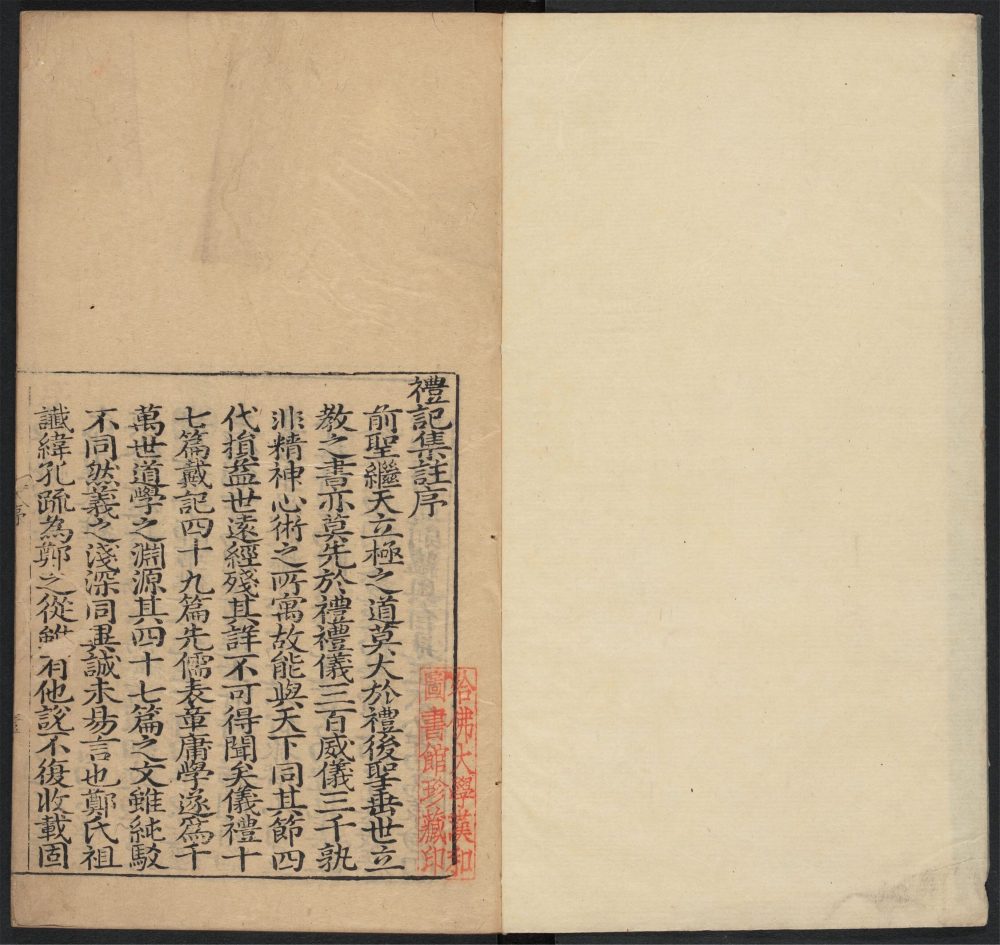 禮記集註序
前聖繼天立極之道莫大於禮後聖垂世立
教之書亦莫先於禮禮儀三百威儀三千孰
非精神心術之所寓故能與天下同其節四
代損益世遠經殘其詳不可得聞矣儀禮十
七篇戴記四十九篇先儒表章庸學遂為千
萬世道學之淵源其四十七篇之文雖純駁
不同然義之淺深同異誠未易言也鄭氏祖
讖緯孔疏為鄭之從雖有他說不復收載固
序
哈佛大學漢和
圖書館珍藏印